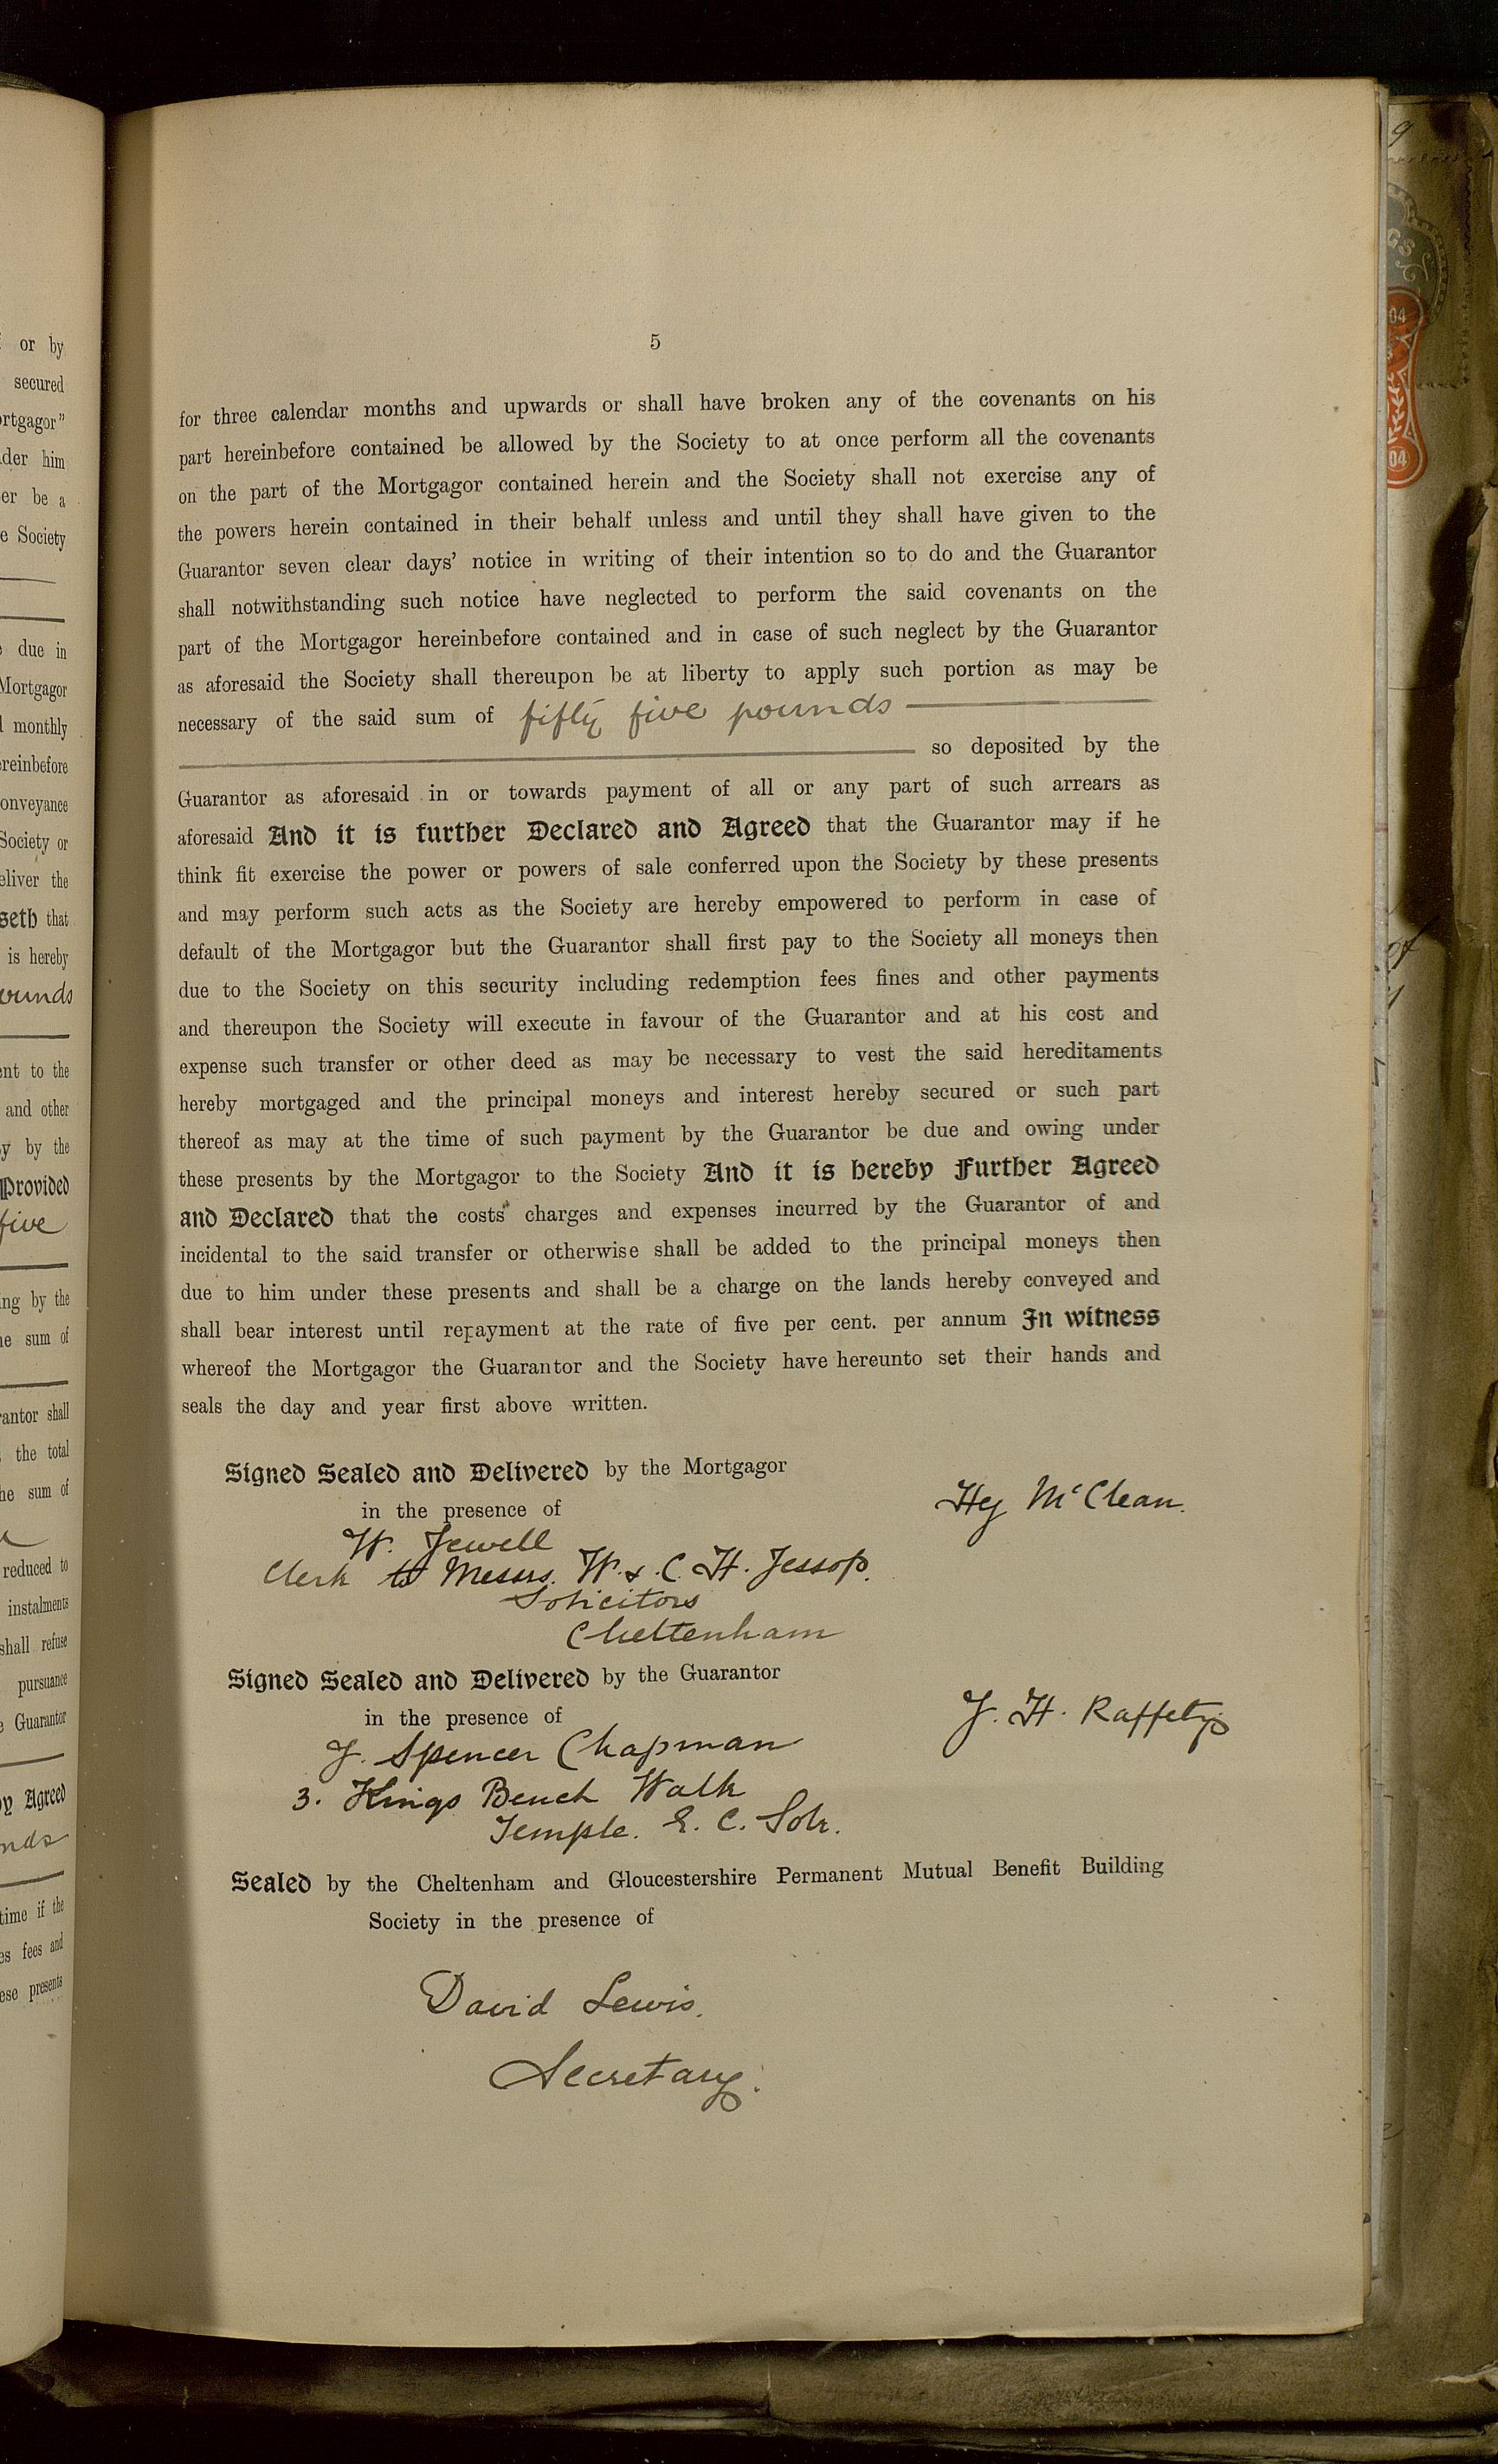 or by
secured
rtgagor"
der him
er be a
e Society
due in
Mortgagor
monthly
reinbefore
onveyance
Society or
eliver the
seth that
is hereby
ounds
ent to the
and other
y by the
Provided
five
ng by the
e sum of
antor shall
the total
he sum of
reduced to
instalments
shall refuse
pursuance
e Guarantor
y Agreed
nds
time if the
es fees and
ese presents
5
for three calendar months and upwards or shall have broken any of the covenants on his
part hereinbefore contained be allowed by the Society to at once perform all the covenants
on the part of the Mortgagor contained herein and the Society shall not exercise any of
the powers herein contained in their behalf unless and until they shall have given to the
Guarantor seven clear days' notice in writing of their intention so to do and the Guarantor
shall notwithstanding such notice have neglected to perform the said covenants on the
part of the Mortgagor hereinbefore contained and in case of such neglect by the Guarantor
as aforesaid the Society shall thereupon be at liberty to apply such portion as may be
necessary of the said sum of fifty five pounds
so deposited by the
Guarantor as aforesaid in or towards payment of all or any part of such arrears as
aforesaid And it is further Declared and Agreed that the Guarantor may if he
think fit exercise the power or powers of sale conferred upon the Society by these presents
and may perform such acts as the Society are hereby empowered to perform in case of
default of the Mortgagor but the Guarantor shall first pay to the Society all moneys then
due to the Society on this security including redemption fees fines and other payments
and thereupon the Society will execute in favour of the Guarantor and at his cost and
expense such transfer or other deed as may be necessary to vest the said hereditaments
hereby mortgaged and the principal moneys and interest hereby secured or such part
thereof as may at the time of such payment by the Guarantor be due and owing under
these presents by the Mortgagor to the Society And it is hereby Further Agreed
and Declared that the costs charges and expenses incurred by the Guarantor of and
incidental to the said transfer or otherwise shall be added to the principal moneys then
due to him under these presents and shall be a charge on the lands hereby conveyed and
shall bear interest until repayment at the rate of five per cent. per annum In witness
whereof the Mortgagor the Guarantor and the Society have hereunto set their hands and
seals the day and year first above written.
Signed Sealed and Delivered by the Mortgagor
in the presence of
Hy McClean.
W. Jewell
Clerk to Messrs. W. & C. H. Jessop.
Solicitors
Cheltenham
Signed Sealed and Delivered by the Guarantor
in the presence of
J. H. Raffety
J. Spencer Chapman
3. Kings Bench Walk
Temple. E. C. Solr.
Sealed by the Cheltenham and Gloucestershire Permanent Mutual Benefit Building
Society in the presence of
David Lewis.
Secretary.
9
GS
04
04
of